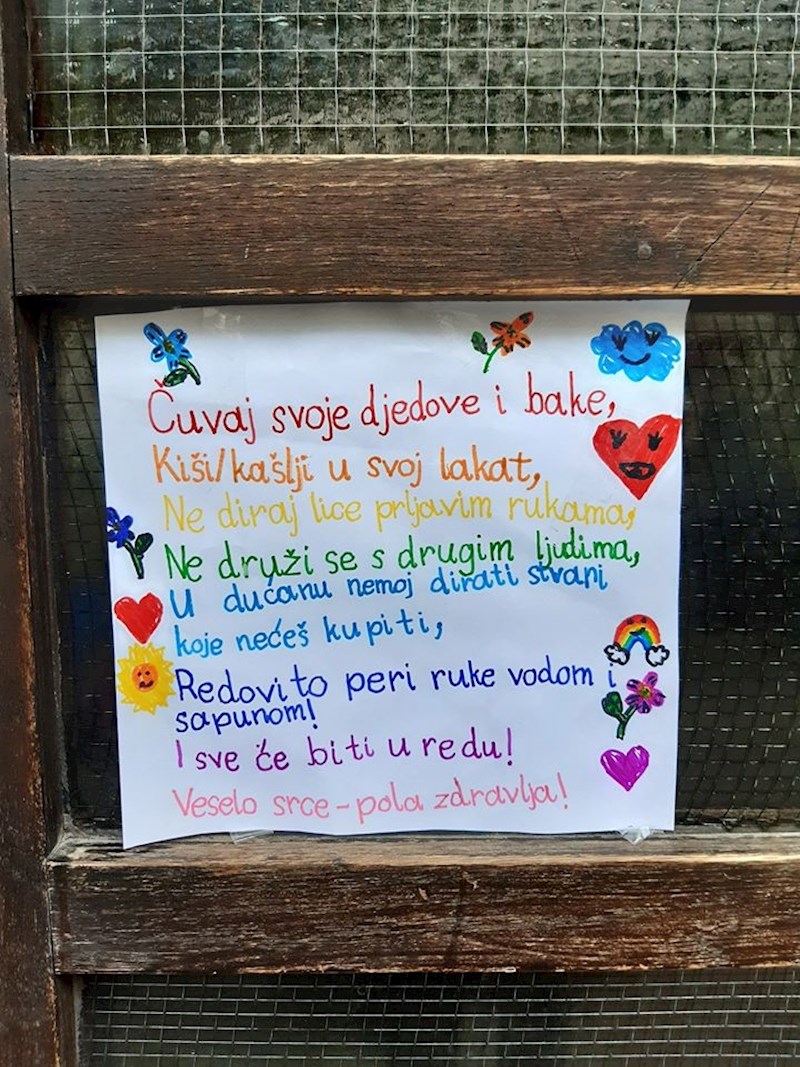 Čuvaj svoje djedove i bake,
Kiši/kašlji u svoj lakat,
Ne diraj lice prljavim rukama,
Ne druži se s drugim ljudima,
U dućanu nemoj dirati stvari
koje nećeš kupiti,
Redovito peri ruke vodom i
sapunom!
I sve će biti u redu!
Veselo srce - pola zdravlja!